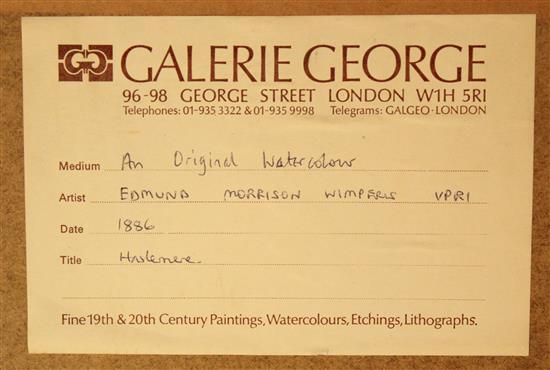 GALERIE GEORGE
96-98 GEORGE STREET LONDON W1H 5RI
Telephones: 01-935 3322 & 01-935 9998 Telegrams: GALGEO·LONDON
Medium An Original Watercolour
Artist EDMUND MORRISON WIMPERIS VPRI
Date 1886
Title Haslemere.
Fine 19th & 20th Century Paintings, Watercolours, Etchings, Lithographs.